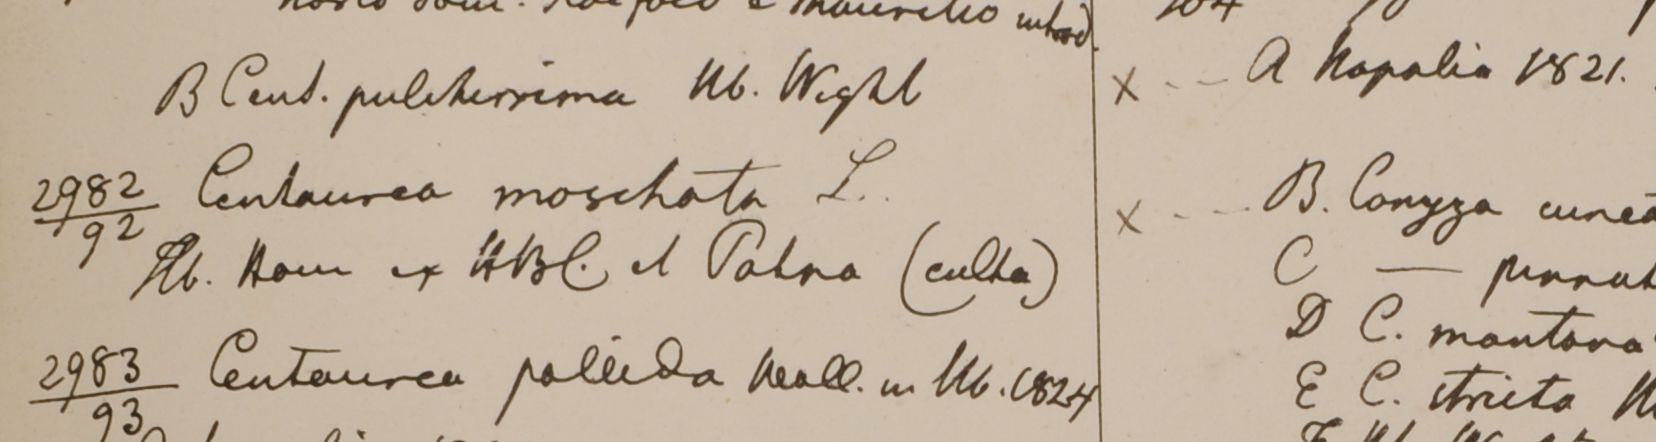 horto bom. e Mauritio introd.
B Cent. pulcherrima Hb. Wight
2982/92 Centaurea moschata L.
Hb. Ham ex HBC. et Patna (culta)
2983/93 Centaurea pallida Wall. in Hb. 1824
104
x -- A Napalia 1821.
x --- B. Conyza cunea
C — pinnat
D C. montana
E C. stricta